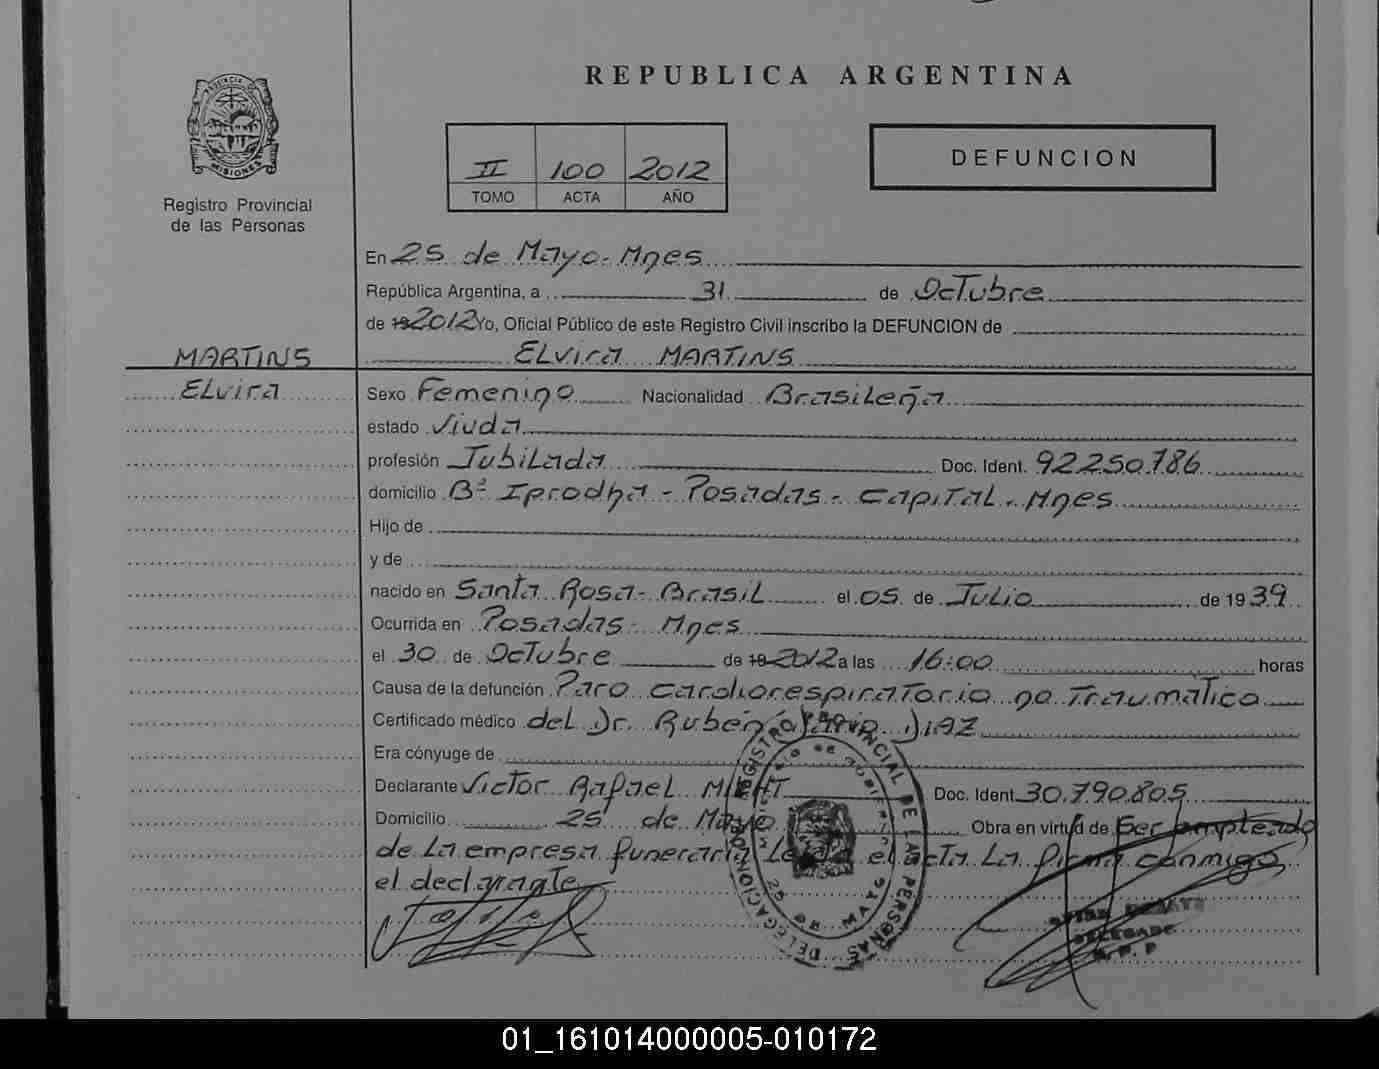 REPUBLICA ARGENTINA
PROVINCIA DE
MISIONES
Registro Provincial
de las Personas
II 100 2012
TOMO ACTA AÑO
DEFUNCION
En 25 de Mayo - Mnes
República Argentina, a 31 de Octubre
de 19 2012 Yo, Oficial Público de este Registro Civil inscribo la DEFUNCION de
MARTINS
Elvira
Elvira MARTINS
Sexo Femenino Nacionalidad Brasileña
estado Viuda
profesión Jubilada Doc. Ident. 92.250.786
domicilio Bº Iprodha - Posadas - Capital - Mnes
Hijo de
y de
nacido en Santa Rosa - Brasil el 05 de Julio de 1939
Ocurrida en Posadas - Mnes
el 30 de Octubre de 19 2012 a las 16:00 horas
Causa de la defunción Paro cardiorespiratorio no Traumático
Certificado médico del Dr. Rubén DIAZ
Era cónyuge de
Declarante Victor Rafael Doc. Ident. 30.790.805
Domicilio 25 de Mayo Obra en virtud de Ser empleado
de la empresa funeraria Leida el acta La firma conmigo
el declarante
REGISTRO PROVINCIAL DE LAS PERSONAS
DELEGACION
MINISTERIO DE GOBIERNO
25 DE MAYO
DELEGADO
R. P. P
01_161014000005-010172